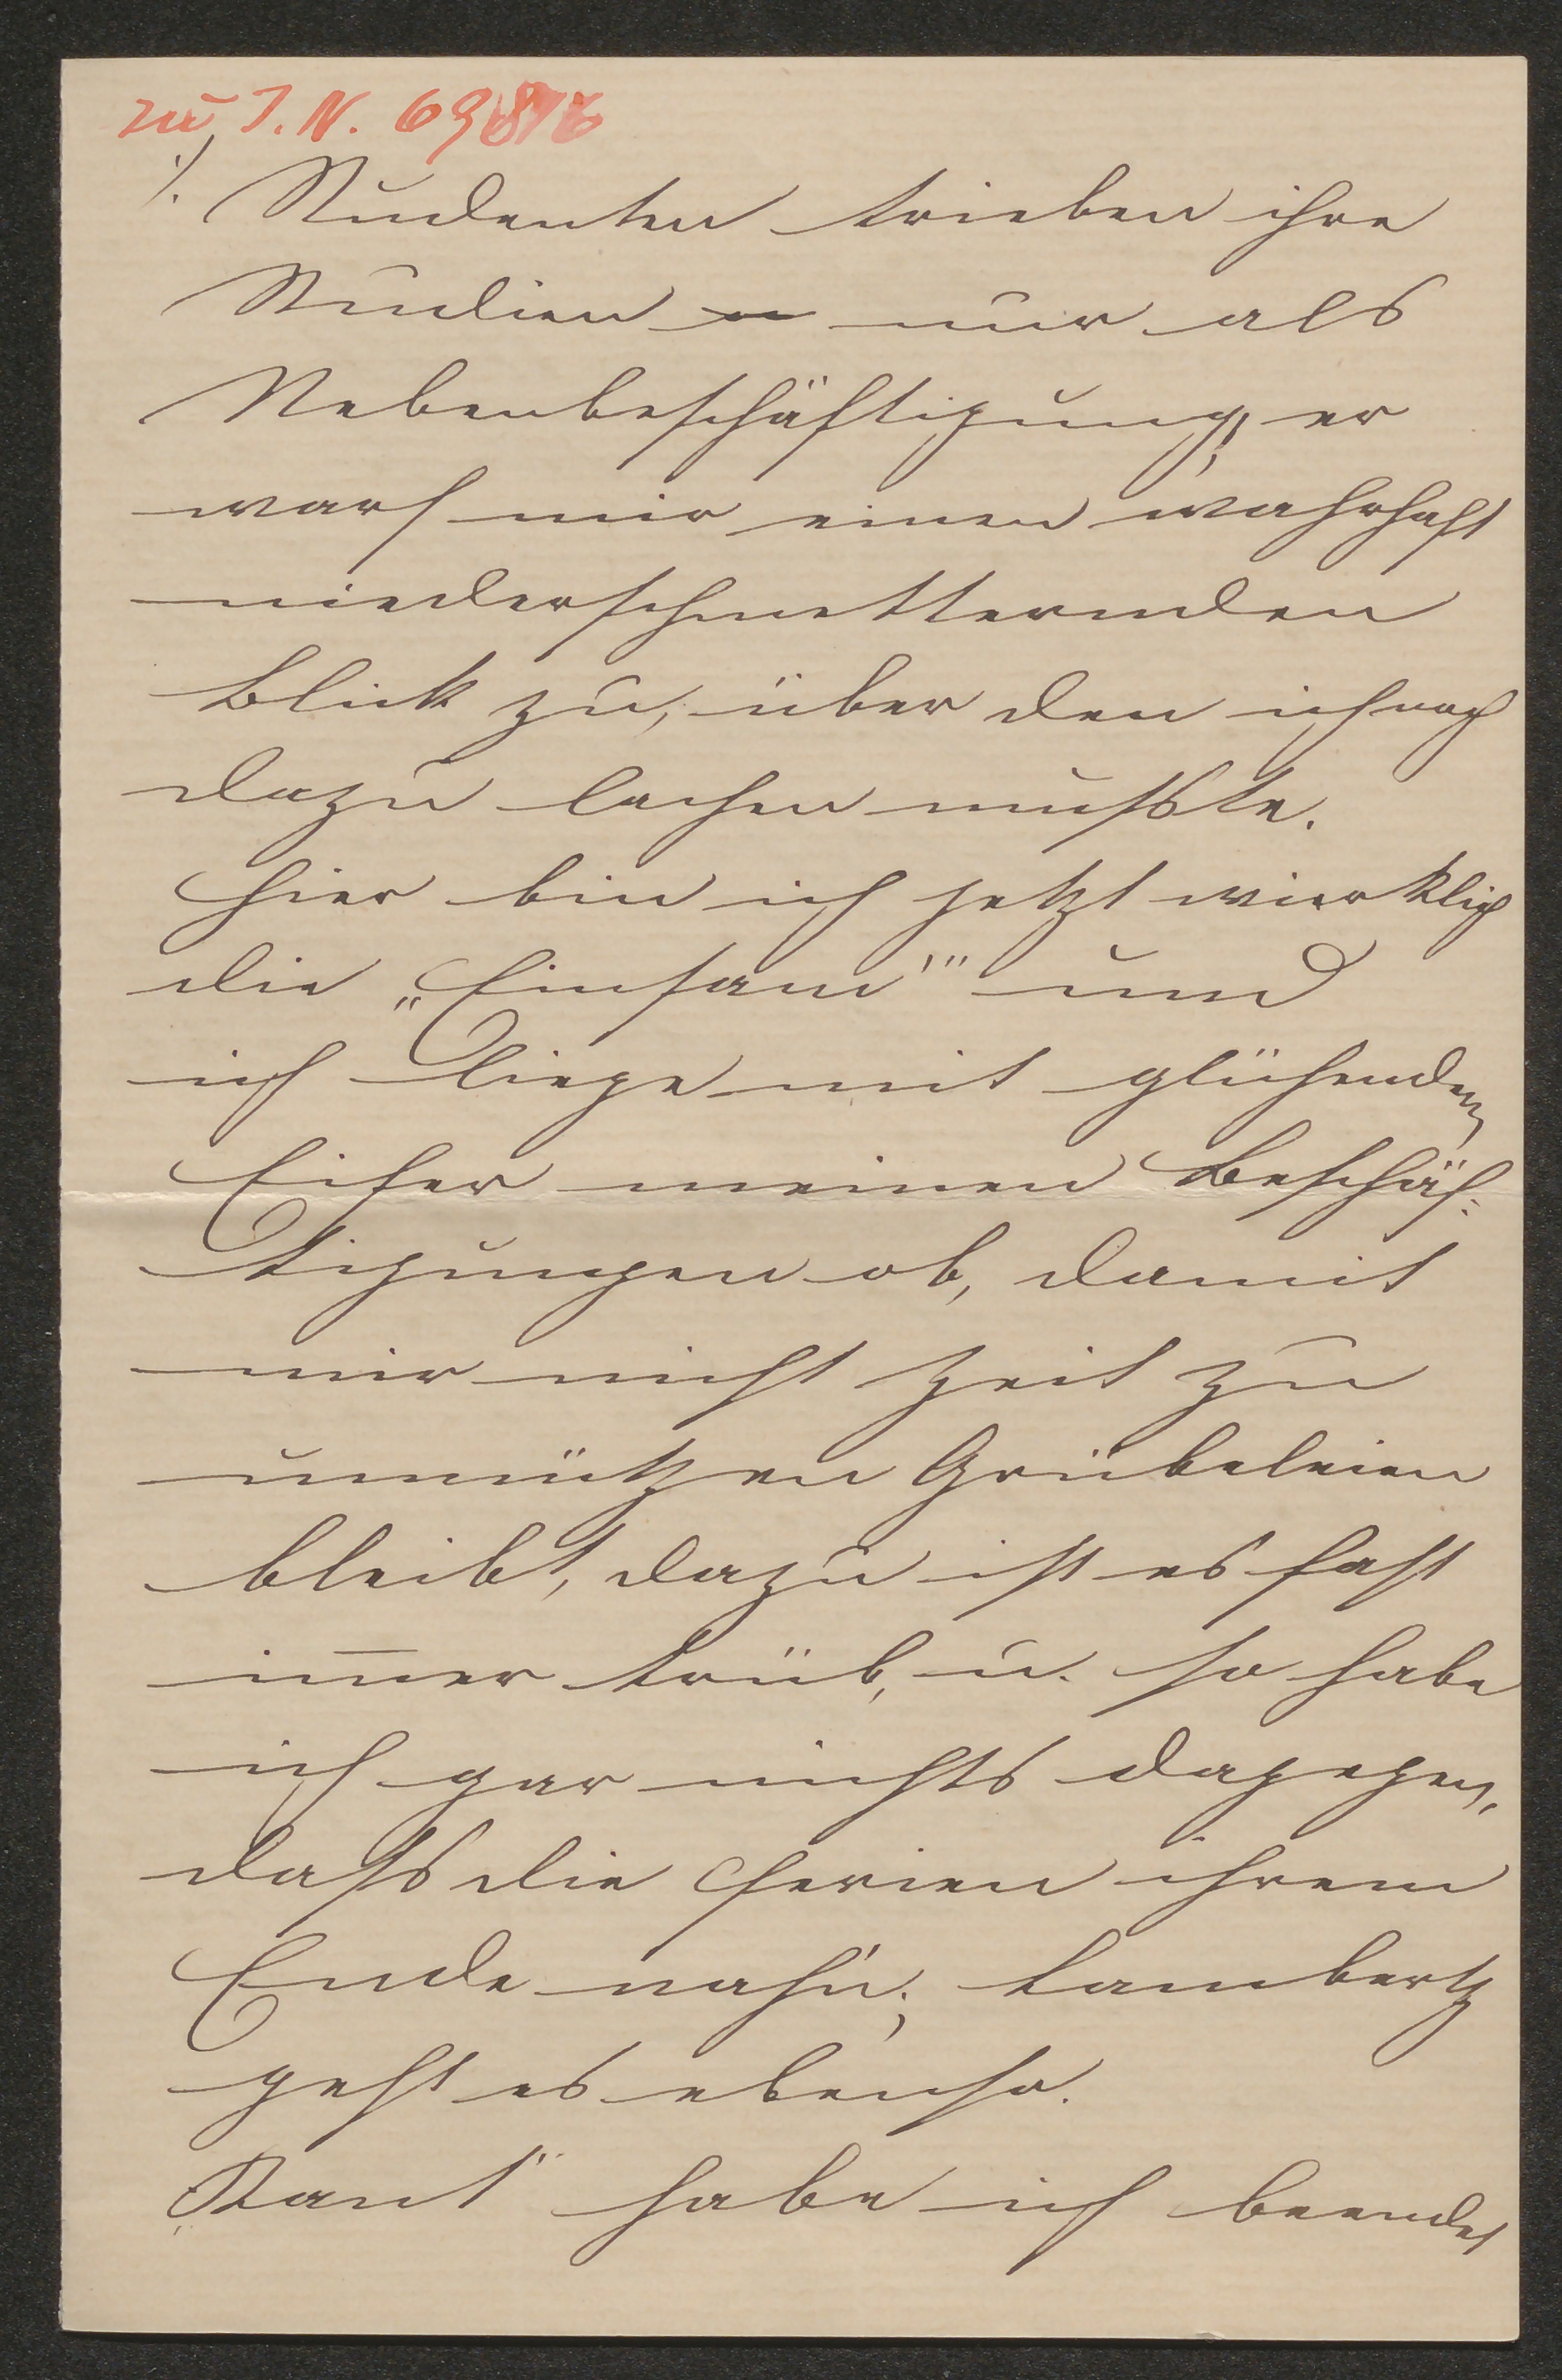 zu J. N. 69816
./. Studenten trieben ihre
Studien nur als
Nebenbeschäftigung; er
warf mir einen wahrhaft
niederschmetternden
Blick zu, über den ich noch
dazu lachen mußste.
Hier bin ich jetzt wierklich
die „Einsam'" und
ich liege mit glühendem
Eifer meinen Beschäf-
tigungen ob, damit
mir nicht Zeit zu
unnützen Grübeleien
bleibt, dazu ist es fast
im̅er trüb, u. so habe
ich gar nichts dagegen,
dass die Ferien ihrem
Ende nah'n; Lambertz
geht es ebenso.
„Kant" habe ich beendet